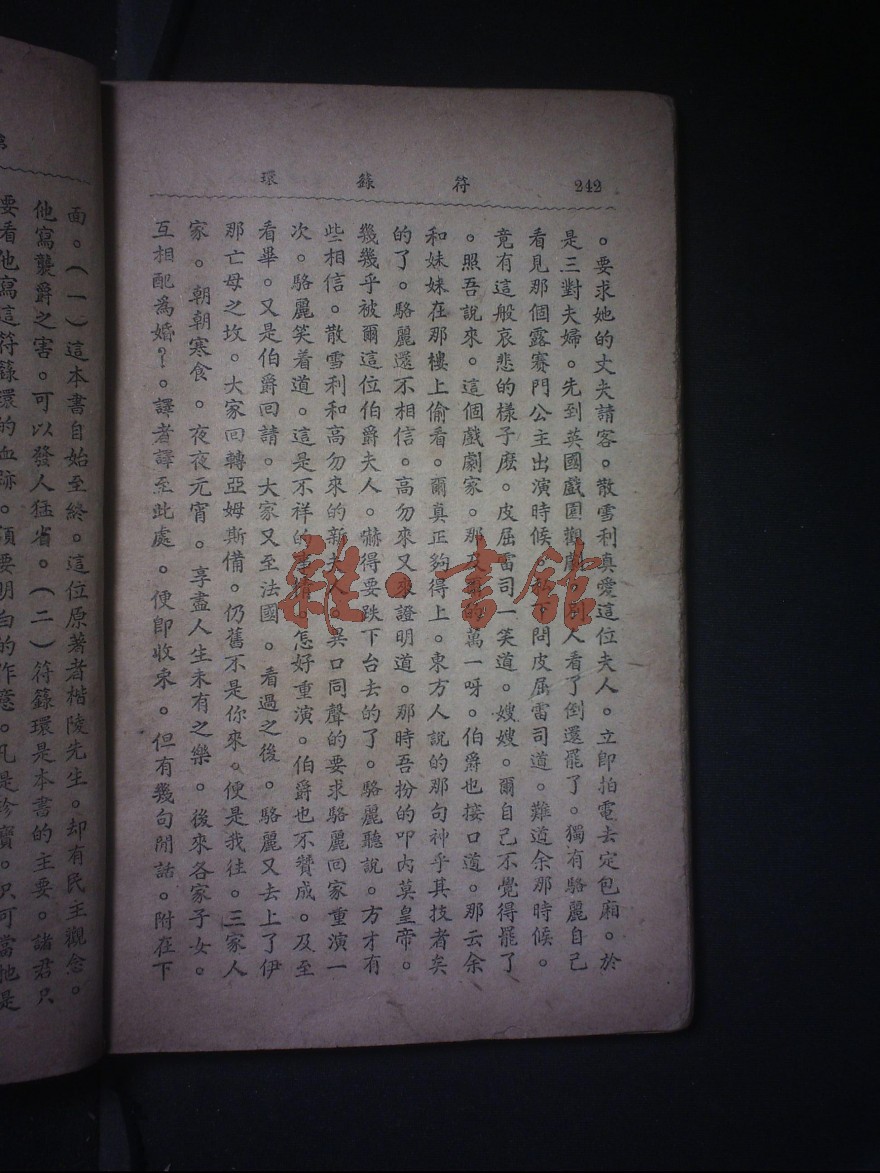 242
符籙環
。要求她的丈夫請客。散雪利真愛這位夫人。立即拍電去定包廂。於
是三對夫婦。先到英國戲園觀戲。別人看了倒還罷了。獨有駱麗自己
看見那個露賽門公主出演時候。下問皮屈雷司道。難道余那時候。
竟有這般哀悲的樣子麽。皮屈雷司一笑道。嫂嫂。爾自己不覺得罷了
。照吾說來。這個戲劇家。那及爾的萬一呀。伯爵也接口道。那云余
和妹妹在那樓上偷看。爾真正夠得上。東方人說的那句神乎其技者矣
的了。駱麗還不相信。高勿來又來證明道。那時吾扮的叩內莫皇帝。
幾幾乎被爾這位伯爵夫人。嚇得要跌下台去的了。駱麗聽說。方才有
些相信。散雪利和高勿來的新夫人。異口同聲的要求駱麗回家重演一
次。駱麗笑着道。這是不祥的事情。怎好重演。伯爵也不贊成。及至
看畢。又是伯爵回請。大家又至法國。看過之後。駱麗又去上了伊
那亡母之坟。大家回轉亞姆斯備。仍舊不是你來。便是我往。三家人
家。朝朝寒食。夜夜元宵。享盡人生未有之樂。後來各家子女。
互相配爲婚？。譯者譯至此處。便卽收束。但有幾句閒話。附在下
面。（一）這本書自始至終。這位原著者楷陵先生。却有民主觀念。
他寫襲爵之害。可以發人狂省。（二）符籙環是本書的主要。諸君只
要看他寫這符籙環的血跡。須要明白的作意。凡是珍寶。只可當他是
雜·書館